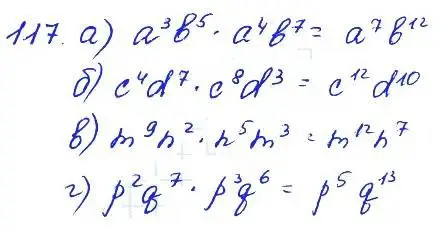 117. а) a³b⁵ · a⁴b⁷ = a⁷b¹²
б) c⁴d⁷ · c⁸d³ = c¹²d¹⁰
в) m⁹n² · n⁵m³ = m¹²n⁷
г) p²q⁷ · p³q⁶ = p⁵q¹³